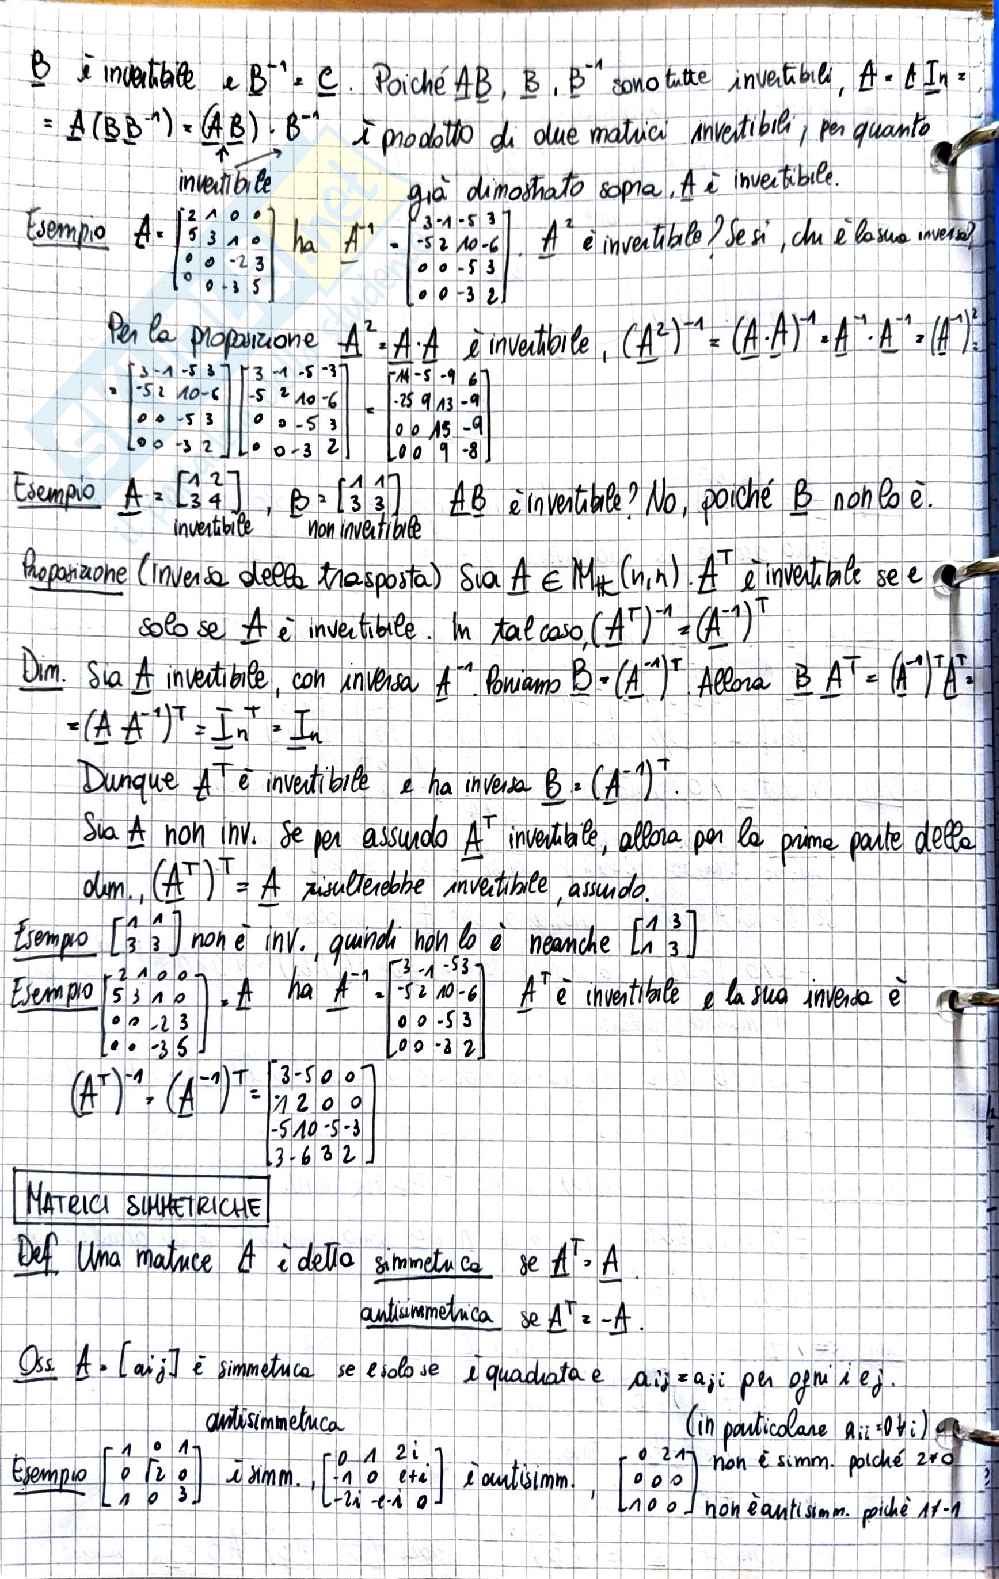 B è invertibile e B⁻¹ = C. Poiché AB, B, B⁻¹ sono tutte invertibili, A = A In =
= A(BB⁻¹) = (AB)·B⁻¹ è prodotto di due matrici invertibili, per quanto
invertibile già dimostrato sopra, A è invertibile.
Esempio A = [2 1 0 0; 5 3 1 0; 0 0 -2 3; 0 0 -3 5] ha A⁻¹ = [3 -1 -5 3; -5 2 10 -6; 0 0 -5 3; 0 0 -3 2]. A² è invertibile? Se sì, chi è la sua inversa?
Per la proposizione A² = A·A è invertibile, (A²)⁻¹ = (A·A)⁻¹ = A⁻¹·A⁻¹ = (A⁻¹)² =
= [3 -1 -5 3; -5 2 10 -6; 0 0 -5 3; 0 0 -3 2] [3 -1 -5 -3; -5 2 10 -6; 0 0 -5 3; 0 0 -3 2] = [14 -5 -9 6; -25 9 13 -9; 0 0 15 -9; 0 0 9 -8]
Esempio A = [1 2; 3 4], B = [1 1; 3 3] AB è invertibile? No, poiché B non lo è.
invertibile non invertibile
Proposizione (inversa della trasposta) Sia A ∈ M_K(n,n). Aᵀ è invertibile se e
solo se A è invertibile. In tal caso, (Aᵀ)⁻¹ = (A⁻¹)ᵀ
Dim. Sia A invertibile, con inversa A⁻¹. Poniamo B = (A⁻¹)ᵀ. Allora B Aᵀ = (A⁻¹)ᵀAᵀ =
= (A A⁻¹)ᵀ = Inᵀ = In
Dunque Aᵀ è invertibile e ha inversa B = (A⁻¹)ᵀ.
Sia A non inv. Se per assurdo Aᵀ invertibile, allora per la prima parte della
dim., (Aᵀ)ᵀ = A risulterebbe invertibile, assurdo.
Esempio [1 1; 3 3] non è inv., quindi non lo è neanche [1 3; 1 3]
Esempio [2 1 0 0; 5 3 1 0; 0 0 -2 3; 0 0 -3 5] = A ha A⁻¹ = [3 -1 -5 3; -5 2 10 -6; 0 0 -5 3; 0 0 -3 2] Aᵀ è invertibile e la sua inversa è
(Aᵀ)⁻¹ = (A⁻¹)ᵀ = [3 -5 0 0; 1 2 0 0; -5 10 -5 -3; 3 -6 3 2]
MATRICI SIMMETRICHE
Def. Una matrice A è detta simmetrica se Aᵀ = A
antisimmetrica se Aᵀ = -A.
Oss. A = [aij] è simmetrica se e solo se è quadrata e aij = aji per ogni i e j.
antisimmetrica (in particolare aii = 0 ∀i)
Esempio [1 0 1; 0 √2 0; 1 0 3] è simm., [0 1 2i; -1 0 e+i; -2i -e-i 0] è antisimm., [0 2 1; 0 0 0; 1 0 0] non è simm. poiché 2≠0
non è antisimm. poiché 1≠-1